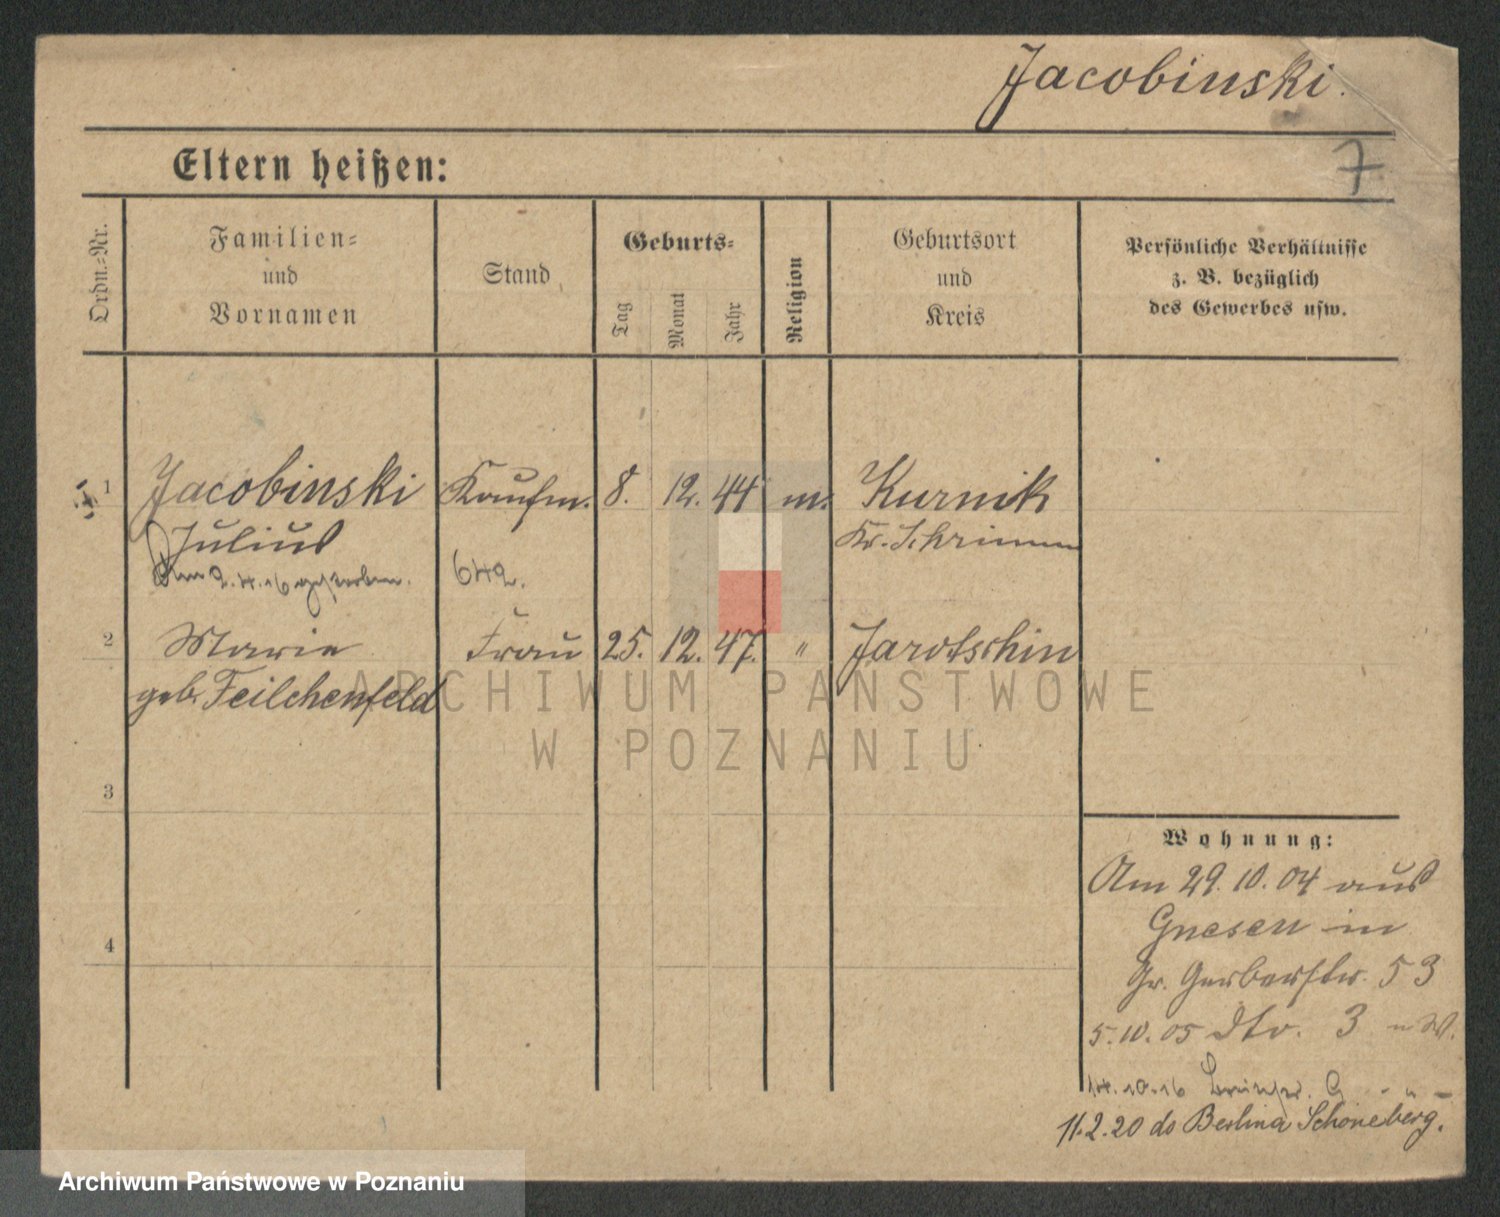 Jacobinski.
7
Eltern heißen:
Ordn.-Nr.
Familien-
und
Vornamen
Stand
Geburts-
Tag
Monat
Jahr
Religion
Geburtsort
und
Kreis
Persönliche Verhältnisse
z. B. bezüglich
des Gewerbes usw.
1 Jacobinski Kaufm. 8. 12. 44 m. Kurnik
Julius Kr. Schrimm
Am 2.4.16 gestorben. 642.
2 Marie Frau 25. 12. 47. " Jarotschin
geb. Feilchenfeld
ARCHIWUM PAŃSTWOWE
W POZNANIU
3
4
Wohnung:
Am 29.10.04 aus
Gnesen in
Gr. Gerberstr. 53
5.10.05 Str. 3 u W.
14.10.16
11.2.20 do Berlina Schöneberg.
Archiwum Państwowe w Poznaniu